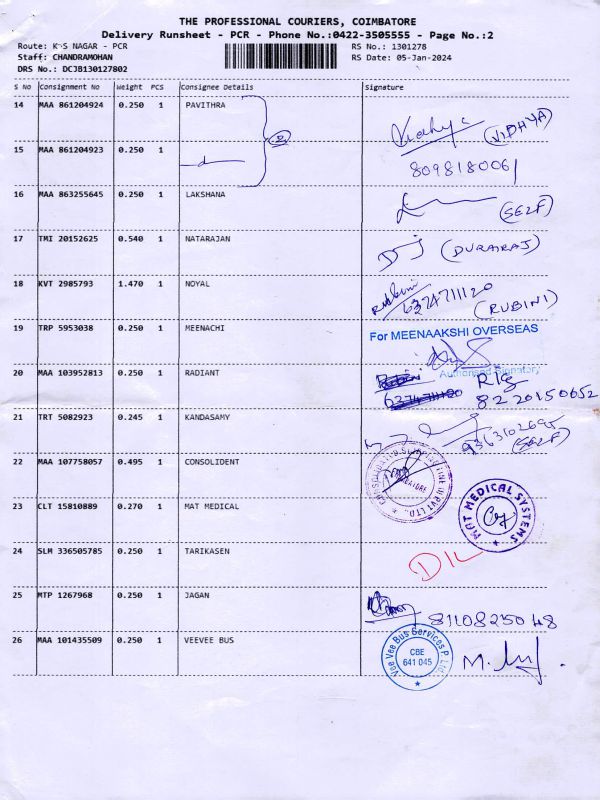 THE PROFESSIONAL COURIERS, COIMBATORE
Delivery Runsheet - PCR - Phone No.:0422-3505555 - Page No.:2
Route: K S NAGAR - PCR RS No.: 1301278
Staff: CHANDRAMOHAN RS Date: 05-Jan-2024
DRS No.: DCJB130127802
S No Consignment No Weight PCS Consignee Details Signature
14 MAA 861204924 0.250 1 PAVITHRA Vidhya (VIDHYA)
15 MAA 861204923 0.250 1 8098180061
16 MAA 863255645 0.250 1 LAKSHANA (SELF)
17 TMI 20152625 0.540 1 NATARAJAN (DURAIRAJ)
18 KVT 2985793 1.470 1 NOYAL Rubini 6374711120 (RUBINI)
19 TRP 5953038 0.250 1 MEENACHI For MEENAAKSHI OVERSEAS
Authorised Signatory
20 MAA 103952813 0.250 1 RADIANT 8220150652
21 TRT 5082923 0.245 1 KANDASAMY (SELF)
22 MAA 107758057 0.495 1 CONSOLIDENT
23 CLT 15810889 0.270 1 MAT MEDICAL MAT MEDICAL SYSTEMS
24 SLM 336505785 0.250 1 TARIKASEN
25 MTP 1267968 0.250 1 JAGAN 8110825048
26 MAA 101435509 0.250 1 VEEVEE BUS Vee Vee Bus Services P. Ltd. CBE 641 045